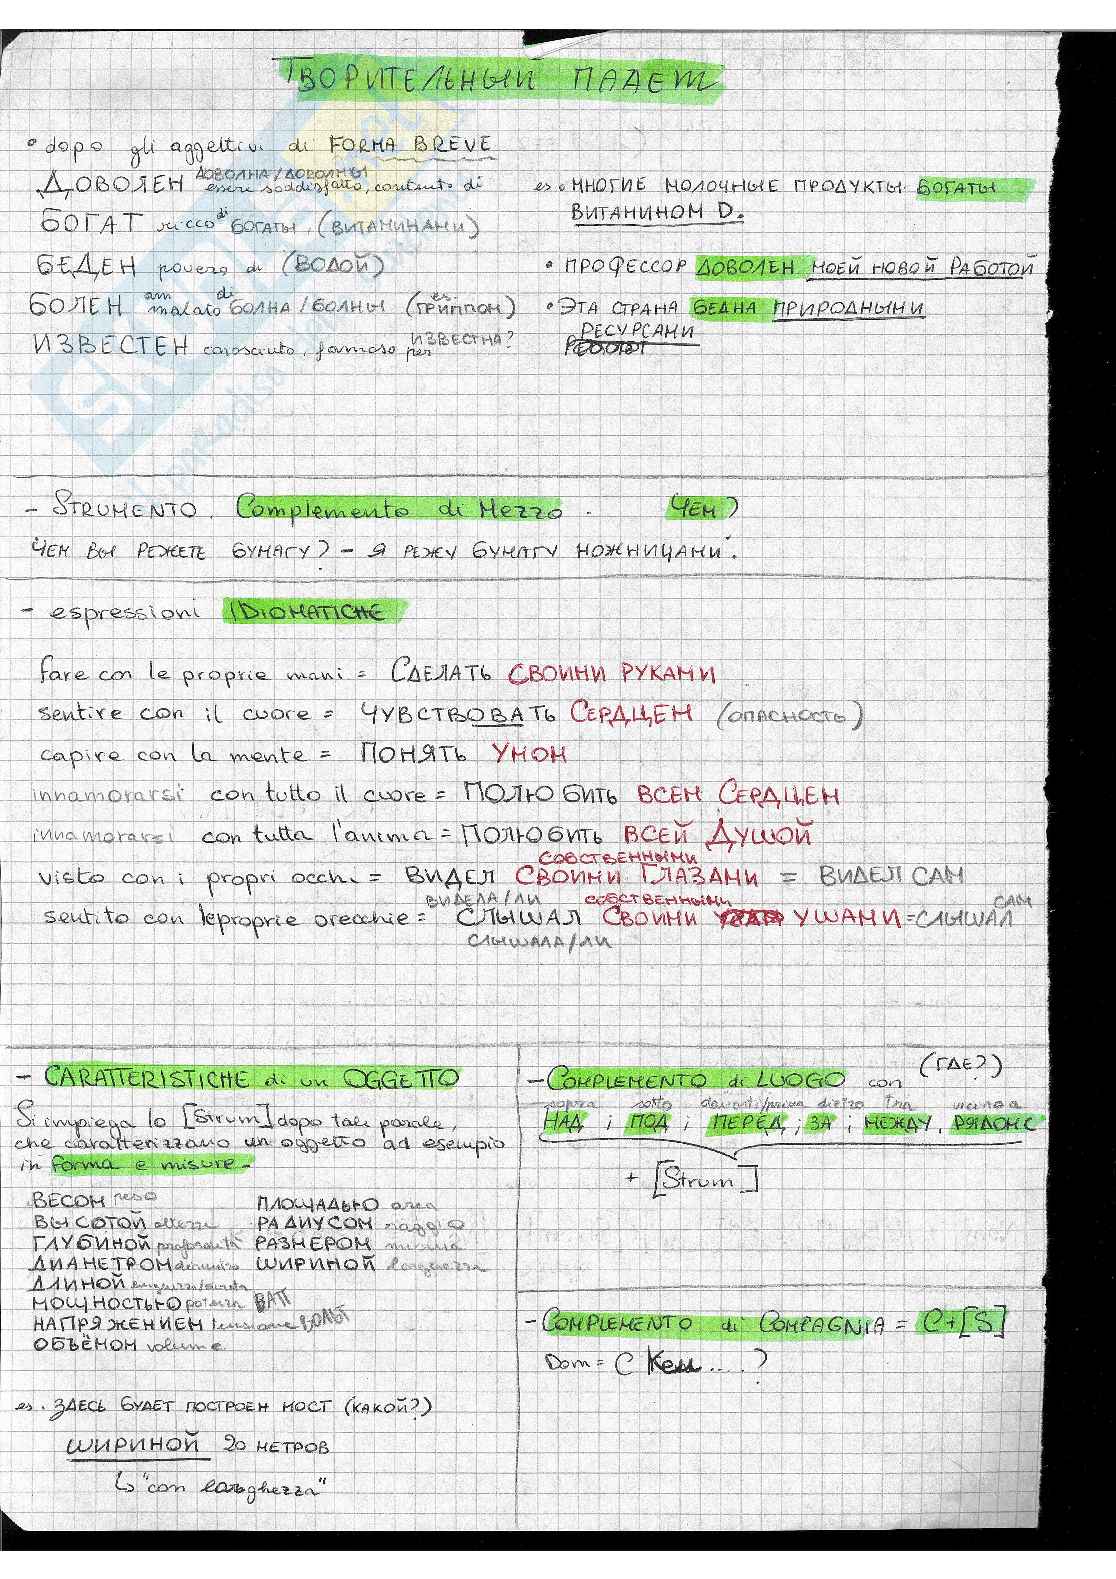 ТВОРИТЕЛЬНЫЙ ПАДЕЖ
• dopo gli aggettivi di FORMA BREVE
ДОВОЛЕН ДОВОЛНА/ДОВОЛНЫ essere soddisfatto, contento di
БОГАТ ricco di БОГАТЫ, (ВИТАМИНАМИ)
БЕДЕН povero di (ВОДОЙ)
БОЛЕН am malato di БОЛНА/БОЛНЫ (es. ГРИППОМ)
ИЗВЕСТЕН conosciuto, famoso per ИЗВЕСТНА?
es. • МНОГИЕ МОЛОЧНЫЕ ПРОДУКТЫ БОГАТЫ
ВИТАНИНОМ D.
• ПРОФЕССОР ДОВОЛЕН МОЕЙ НОВОЙ РАБОТОЙ
• ЭТА СТРАНА БЕДНА ПРИРОДНЫМИ
РЕСУРСАМИ
- STRUMENTO. Complemento di Mezzo. ЧЕМ?
ЧЕМ ВЫ РЕЖЕТЕ БУМАГУ? - Я РЕЖУ БУМАГУ НОЖНИЦАМИ.
- espressioni IDIOMATICHE
fare con le proprie mani = СДЕЛАТЬ СВОИМИ РУКАМИ
sentire con il cuore = ЧУВСТВОВАТЬ СЕРДЦЕМ (ОПАСНОСТЬ)
capire con la mente = ПОНЯТЬ УМОМ
innamorarsi con tutto il cuore = ПОЛЮБИТЬ ВСЕМ СЕРДЦЕМ
innamorarsi con tutta l'anima = ПОЛЮБИТЬ ВСЕЙ ДУШОЙ
СОБСТВЕННЫМИ
visto con i propri occhi = ВИДЕЛ СВОИМИ ГЛАЗАМИ = ВИДЕЛ САМ
ВИДЕЛА/ЛИ СОБСТВЕННЫМИ САМ
sentito con le proprie orecchie = СЛЫШАЛ СВОИМИ УШАМИ = СЛЫШАЛ
СЛЫШАЛА/ЛИ
- CARATTERISTICHE di un OGGETTO
Si impiega lo [Strum] dopo tali parole,
che caratterizzano un oggetto ad esempio
in forma e misure-
ВЕСОМ peso
ВЫСОТОЙ altezza
ГЛУБИНОЙ profondità
ДИАМЕТРОМ diametro
ДЛИНОЙ
МОЩНОСТЬЮ potenza ВАТТ
НАПРЯЖЕНИЕМ tensione ВОЛЬТ
ОБЪЁМОМ volume
ПЛОЩАДЬЮ area
РАДИУСОМ raggio
РАЗМЕРОМ misura
ШИРИНОЙ larghezza
es. ЗДЕСЬ БУДЕТ ПОСТРОЕН МОСТ (КАКОЙ?)
ШИРИНОЙ 20 МЕТРОВ
↳ "con larghezza"
- COMPLEMENTO di LUOGO con (ГДЕ?)
sopra sotto davanti/prima dietro tra vicino a
НАД; ПОД; ПЕРЕД; ЗА; МЕЖДУ, РЯДОМ С
+ [Strum]
- COMPLEMENTO di COMPAGNIA = C+[S]
Dom = С Кем....?